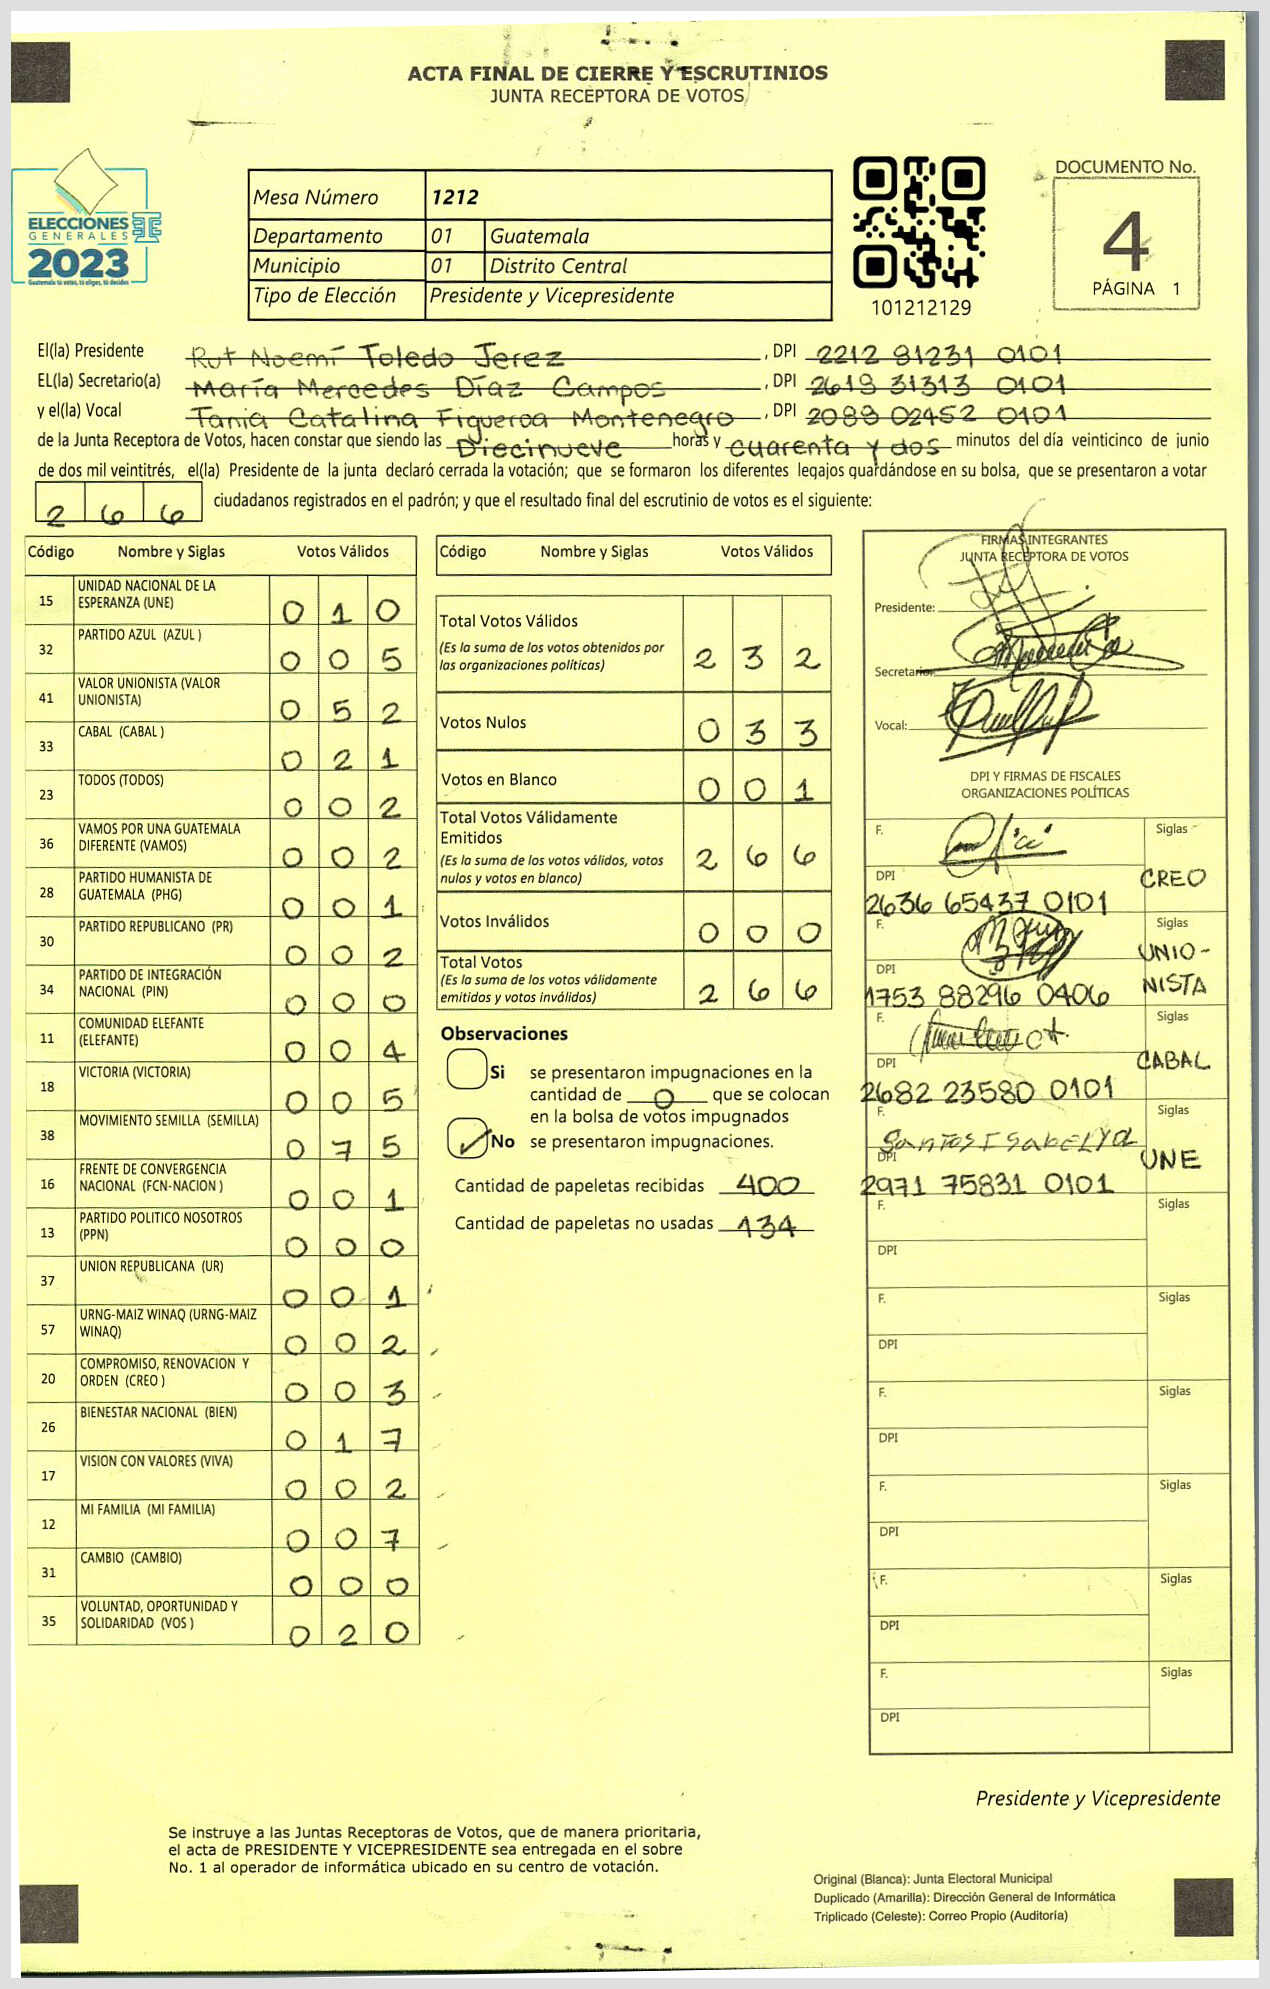 ACTA FINAL DE CIERRE Y ESCRUTINIOS
JUNTA RECEPTORA DE VOTOS
ELECCIONES
GENERALES
2023
Guatemala tú votas, tú eliges, tú decides
Mesa Número 1212
Departamento 01 Guatemala
Municipio 01 Distrito Central
Tipo de Elección Presidente y Vicepresidente
101212129
DOCUMENTO No.
4
PÁGINA 1
El(la) Presidente Rut Noemí Toledo Jerez, DPI 2212 81231 0101
EL(la) Secretario(a) María Mercedes Díaz Campos, DPI 2619 31313 0101
y el(la) Vocal Tania Catalina Figueroa Montenegro, DPI 2089 02452 0101
de la Junta Receptora de Votos, hacen constar que siendo las Diecinueve horas y cuarenta y dos minutos del día veinticinco de junio
de dos mil veintitrés, el(la) Presidente de la junta declaró cerrada la votación; que se formaron los diferentes legajos guardándose en su bolsa, que se presentaron a votar
266 ciudadanos registrados en el padrón; y que el resultado final del escrutinio de votos es el siguiente:
Código Nombre y Siglas Votos Válidos
15 UNIDAD NACIONAL DE LA ESPERANZA (UNE) 0 1 0
32 PARTIDO AZUL (AZUL ) 0 0 5
41 VALOR UNIONISTA (VALOR UNIONISTA) 0 5 2
33 CABAL (CABAL ) 0 2 1
23 TODOS (TODOS) 0 0 2
36 VAMOS POR UNA GUATEMALA DIFERENTE (VAMOS) 0 0 2
28 PARTIDO HUMANISTA DE GUATEMALA (PHG) 0 0 1
30 PARTIDO REPUBLICANO (PR) 0 0 2
34 PARTIDO DE INTEGRACIÓN NACIONAL (PIN) 0 0 0
11 COMUNIDAD ELEFANTE (ELEFANTE) 0 0 4
18 VICTORIA (VICTORIA) 0 0 5
38 MOVIMIENTO SEMILLA (SEMILLA) 0 7 5
16 FRENTE DE CONVERGENCIA NACIONAL (FCN-NACION ) 0 0 1
13 PARTIDO POLITICO NOSOTROS (PPN) 0 0 0
37 UNION REPUBLICANA (UR) 0 0 1
57 URNG-MAIZ WINAQ (URNG-MAIZ WINAQ) 0 0 2
20 COMPROMISO, RENOVACION Y ORDEN (CREO ) 0 0 3
26 BIENESTAR NACIONAL (BIEN) 0 1 7
17 VISION CON VALORES (VIVA) 0 0 2
12 MI FAMILIA (MI FAMILIA) 0 0 7
31 CAMBIO (CAMBIO) 0 0 0
35 VOLUNTAD, OPORTUNIDAD Y SOLIDARIDAD (VOS ) 0 2 0
Código Nombre y Siglas Votos Válidos
Total Votos Válidos
(Es la suma de los votos obtenidos por
las organizaciones políticas) 2 3 2
Votos Nulos 0 3 3
Votos en Blanco 0 0 1
Total Votos Válidamente
Emitidos
(Es la suma de los votos válidos, votos
nulos y votos en blanco) 2 6 6
Votos Inválidos 0 0 0
Total Votos
(Es la suma de los votos válidamente
emitidos y votos inválidos) 2 6 6
Observaciones
Si se presentaron impugnaciones en la
cantidad de 0 que se colocan
en la bolsa de votos impugnados
No se presentaron impugnaciones.
Cantidad de papeletas recibidas 400
Cantidad de papeletas no usadas 134
FIRMAS INTEGRANTES
JUNTA RECEPTORA DE VOTOS
Presidente:
Secretario:
Vocal:
DPI Y FIRMAS DE FISCALES
ORGANIZACIONES POLÍTICAS
F. Siglas
DPI CREO
2636 65437 0101
F. Siglas
DPI UNIO-
1753 88296 0406 NISTA
F. Siglas
DPI CABAL
2682 23580 0101
F. Siglas
DPI UNE
2971 75831 0101
F. Siglas
DPI
F. Siglas
DPI
F. Siglas
DPI
F. Siglas
DPI
F. Siglas
DPI
F. Siglas
DPI
Presidente y Vicepresidente
Se instruye a las Juntas Receptoras de Votos, que de manera prioritaria,
el acta de PRESIDENTE Y VICEPRESIDENTE sea entregada en el sobre
No. 1 al operador de informática ubicado en su centro de votación.
Original (Blanca): Junta Electoral Municipal
Duplicado (Amarilla): Dirección General de Informática
Triplicado (Celeste): Correo Propio (Auditoría)